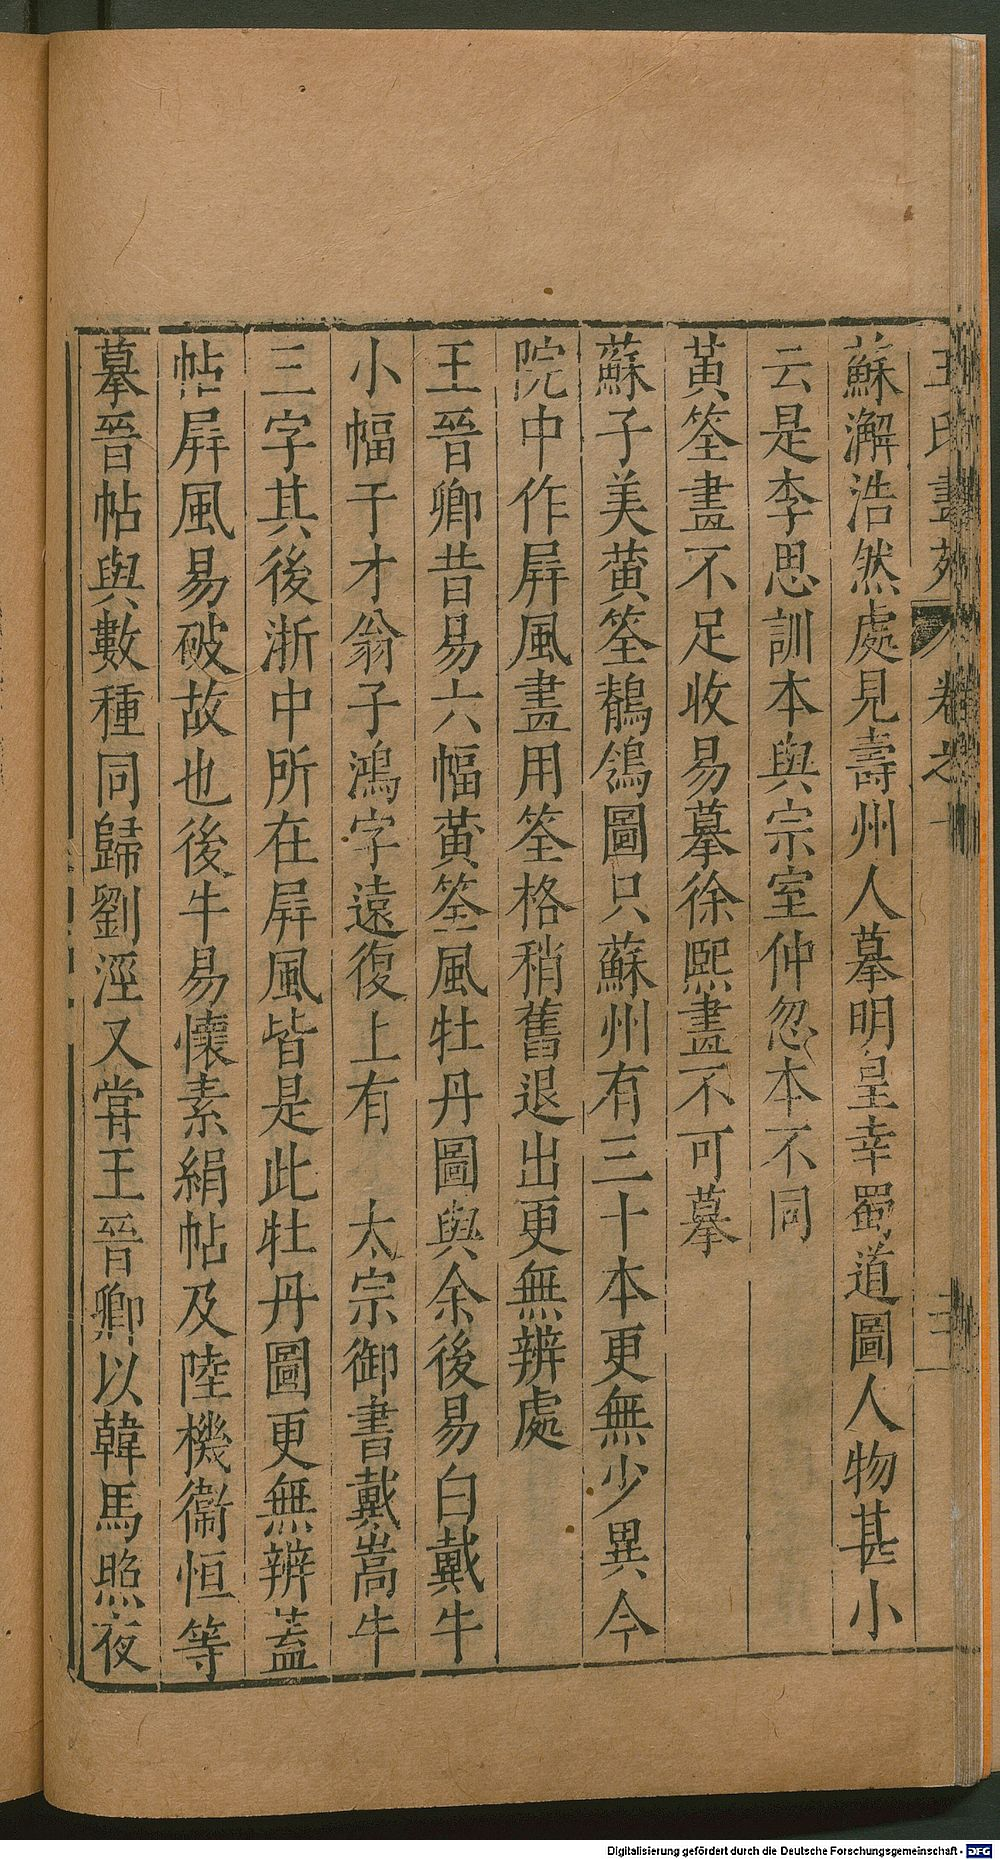 王氏畫苑 卷之十 三
蘇澥浩然處見壽州人摹明皇幸蜀道圖人物甚小
云是李思訓本與宗室仲忽本不同
黃筌畫不足收易摹徐熙畫不可摹
蘇子美黃筌鶺鴒圖只蘇州有三十本更無少異今
院中作屏風畫用筌格稍舊退出更無辨處
王晉卿昔易六幅黃筌風牡丹圖與余後易白戴牛
小幅于才翁子鴻字遠復上有 太宗御書戴嵩牛
三字其後浙中所在屏風皆是此牡丹圖更無辨蓋
帖屏風易破故也後牛易懷素絹帖及陸機衞恒等
摹晉帖與數種同歸劉涇又甞王晉卿以韓馬照夜
Digitalisierung gefördert durch die Deutsche Forschungsgemeinschaft - DFG